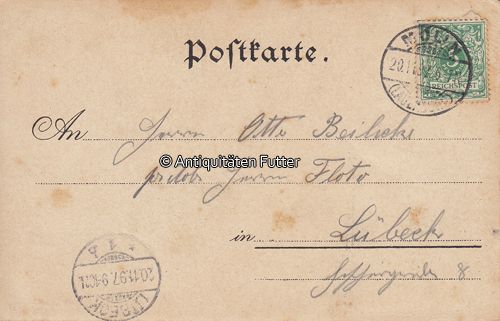 Postkarte.
MÖLLN
20.11.97
5
REICHSPOST
(LAUENBURG)
An Herrn Otto Beilicke
© Antiquitäten Futter
Herrn Floto
in Lübeck
8
* 1 b
20.11.97. 9-10
LÜBECK